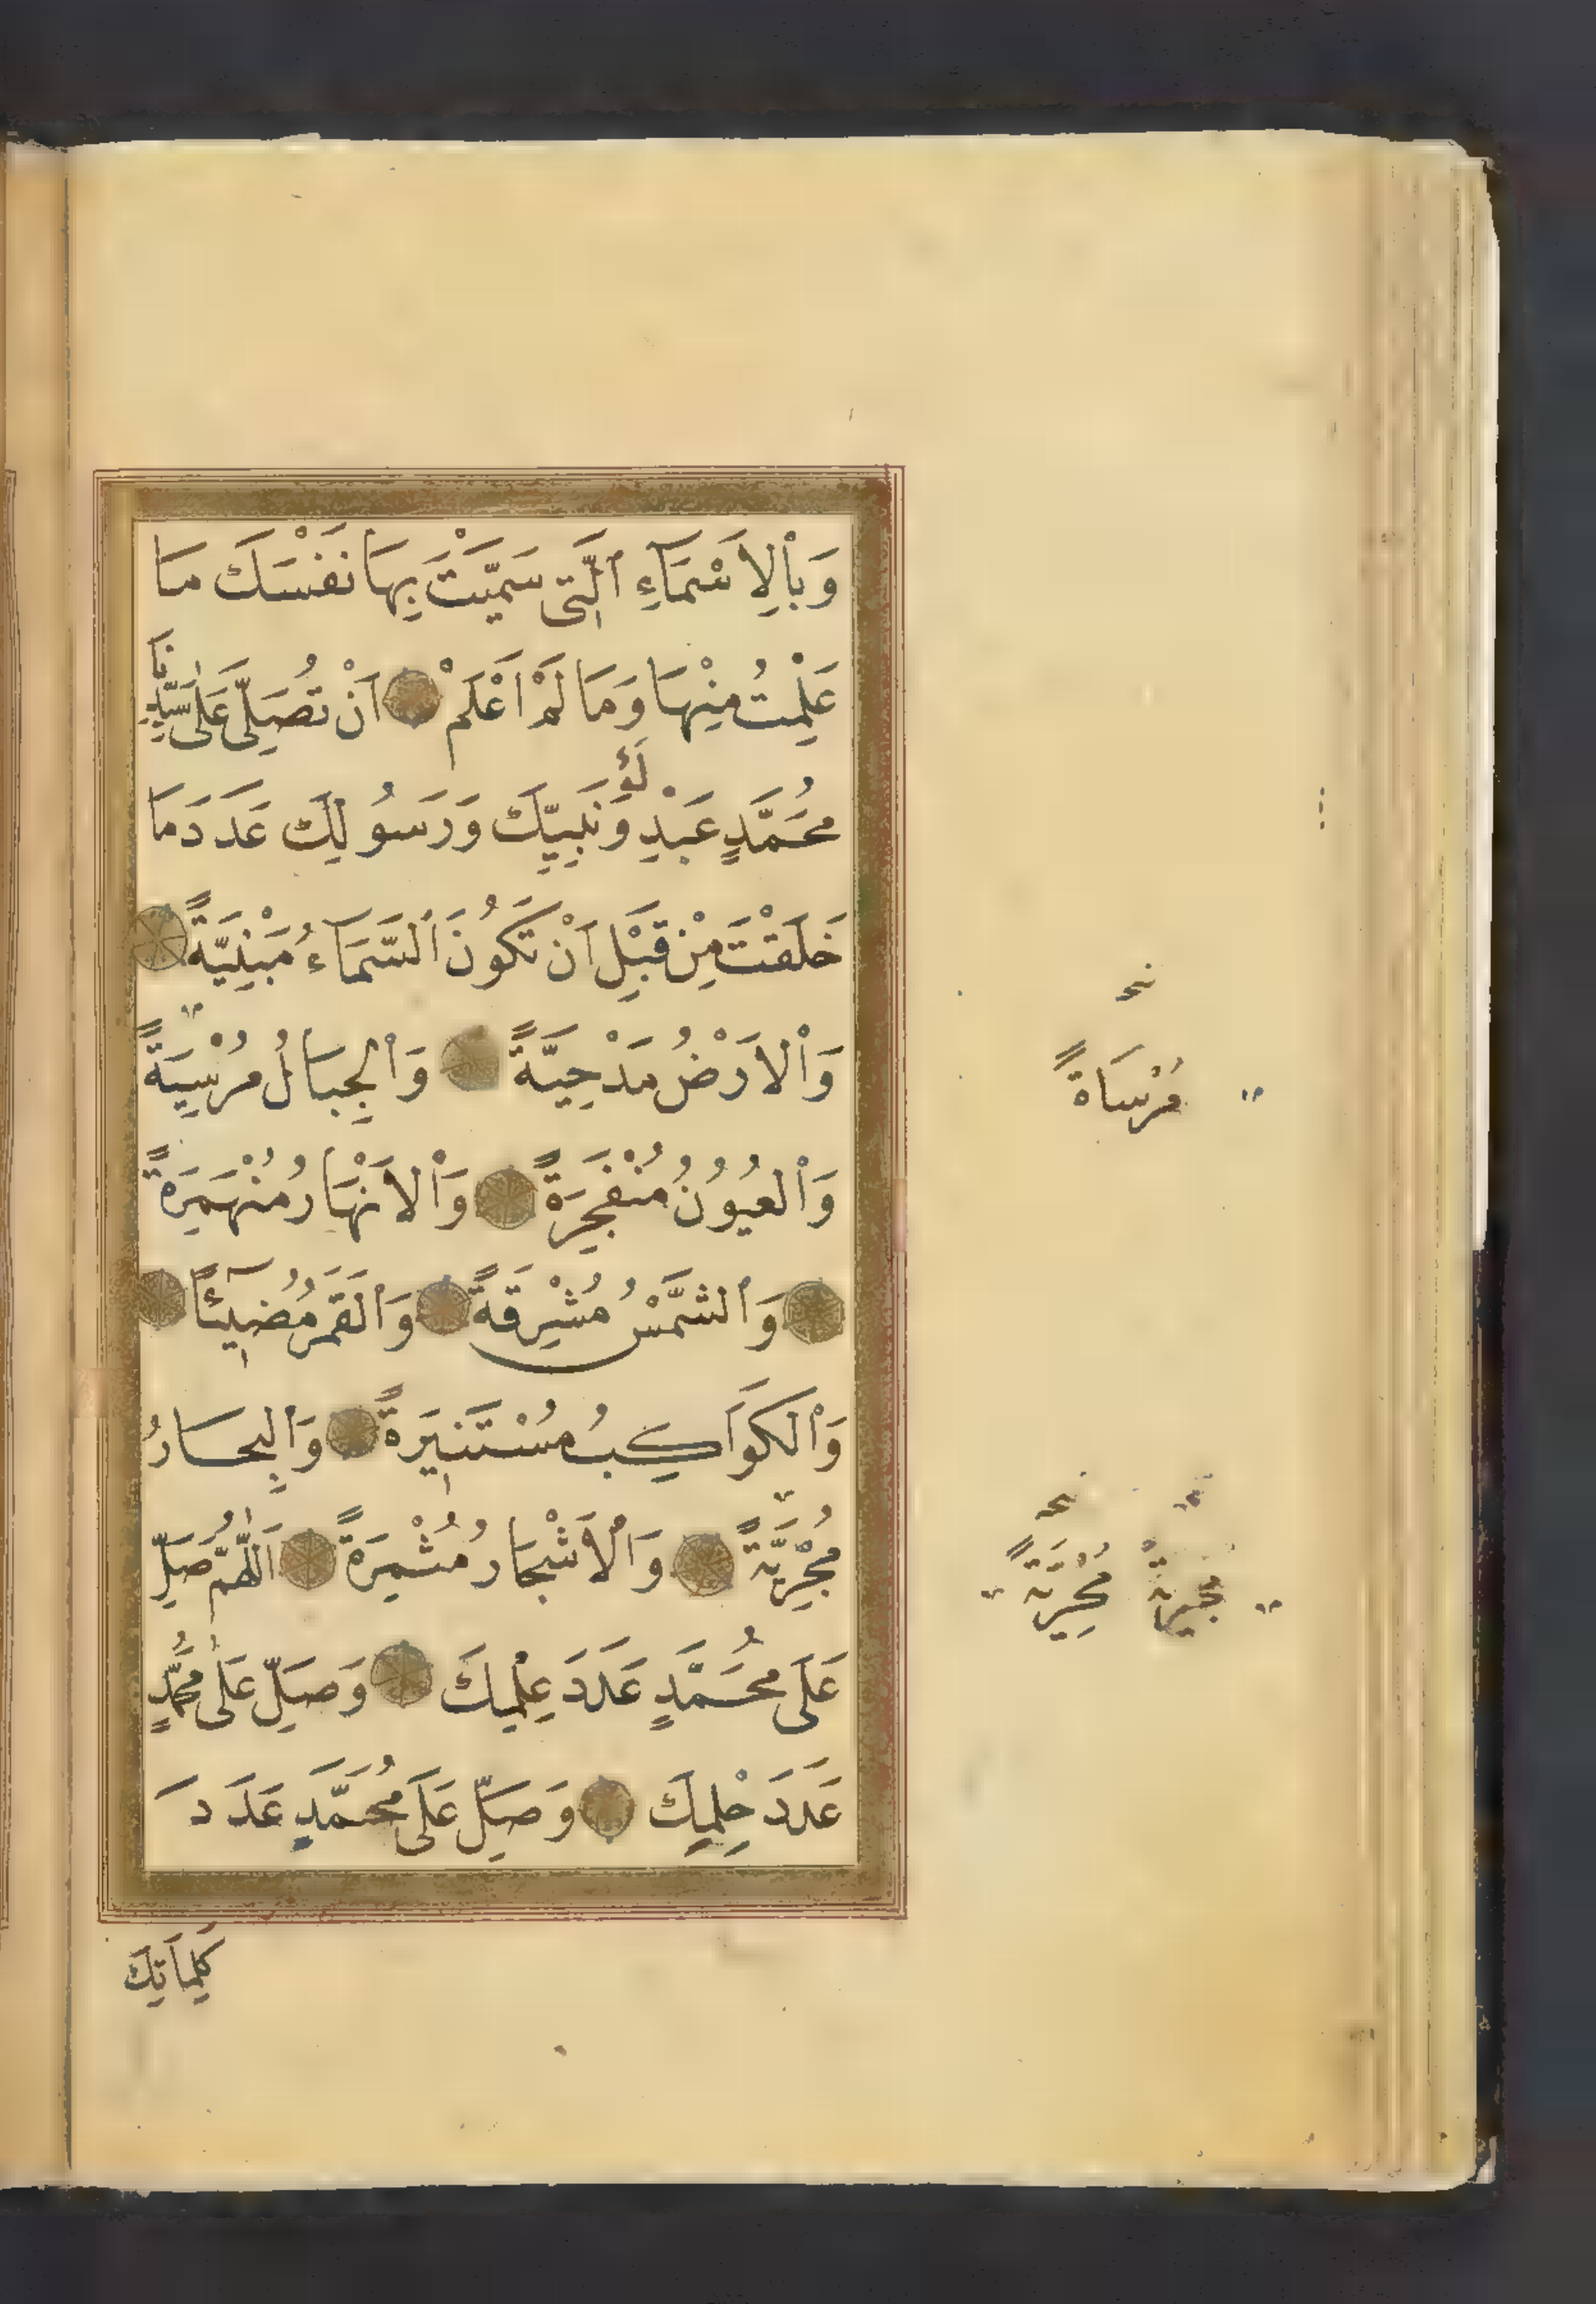 وَبِاْلاَسْمَآءِ اَلَّتِى سَمَّيْتَ بِهَا نَفْسَكَ مَا
عَلِمْتُ مِنْهَا وَمَا لَمْ اَعْلَمْ اَنْ تُصَلِّىَ عَلٰى سَيِّدِنَا
مُحَمَّدٍ عَبْدِكَ وَنَبِيِّكَ وَرَسُولِكَ عَدَدَ مَا
خَلَقْتَ مِنْ قَبْلِ اَنْ تَكُونَ اَلسَّمَاءُ مَبْنِيَّةً
وَاْلاَرْضُ مَدْحِيَّةً وَاْلجِبَالُ مُرْسِيَةً
وَاْلعُيُوُنُ مُنْفَجِرَةً وَاْلاَنْهَارُ مُنْهَمِرَةً
وَاَلشَّمْسُ مُشْرِقَةً وَاَلْقَمَرُ مُضِيٓئًا
وَاْلكَوَاكِبُ مُسْتَنِيرَةً وَاْلبِحَارُ
مُجْرِيَّةً وَاْلاَشْجَارُ مُثْمِرَةً اَللّٰهُمَّ صَلِّ
عَلَى مُحَمَّدٍ عَدَدَ عِلْمِكَ وَصَلِّ عَلٰى مُحَمَّدٍ
عَدَدَ حِلْمِكَ وَصَلِّ عَلَى مُحَمَّدٍ عَدَدَ
كَلِمَاتِكَ
مُرْسَاةً
مُجْرِيَةً